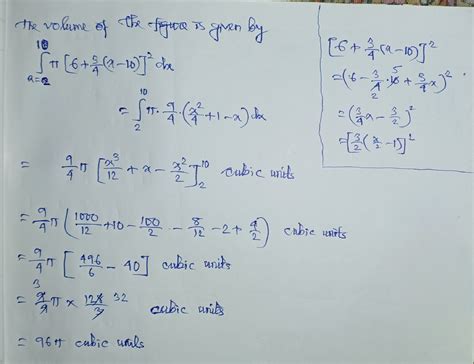 The volume of the figure is given by
∫_{a=2}^{10} π [6 + 3/4 (x-10)]² dx
= ∫_{2}^{10} π · 9/4 · (x²/4 + 1 - x) dx
= 9/4 π [x³/12 + x - x²/2]_{2}^{10} cubic units
= 9/4 π (1000/12 + 10 - 100/2 - 8/12 - 2 + 4/2) cubic units
= 9/4 π [496/6 - 40] cubic units
= 9/4 π × 128/3 cubic units
3 32
= 96π cubic units
[6 + 3/4 (x-10)]²
= (6 - 3/4 · 10 + 3/4 x)²
5
= (3/4 x - 3/2)²
= [3/2 (x/2 - 1)]²